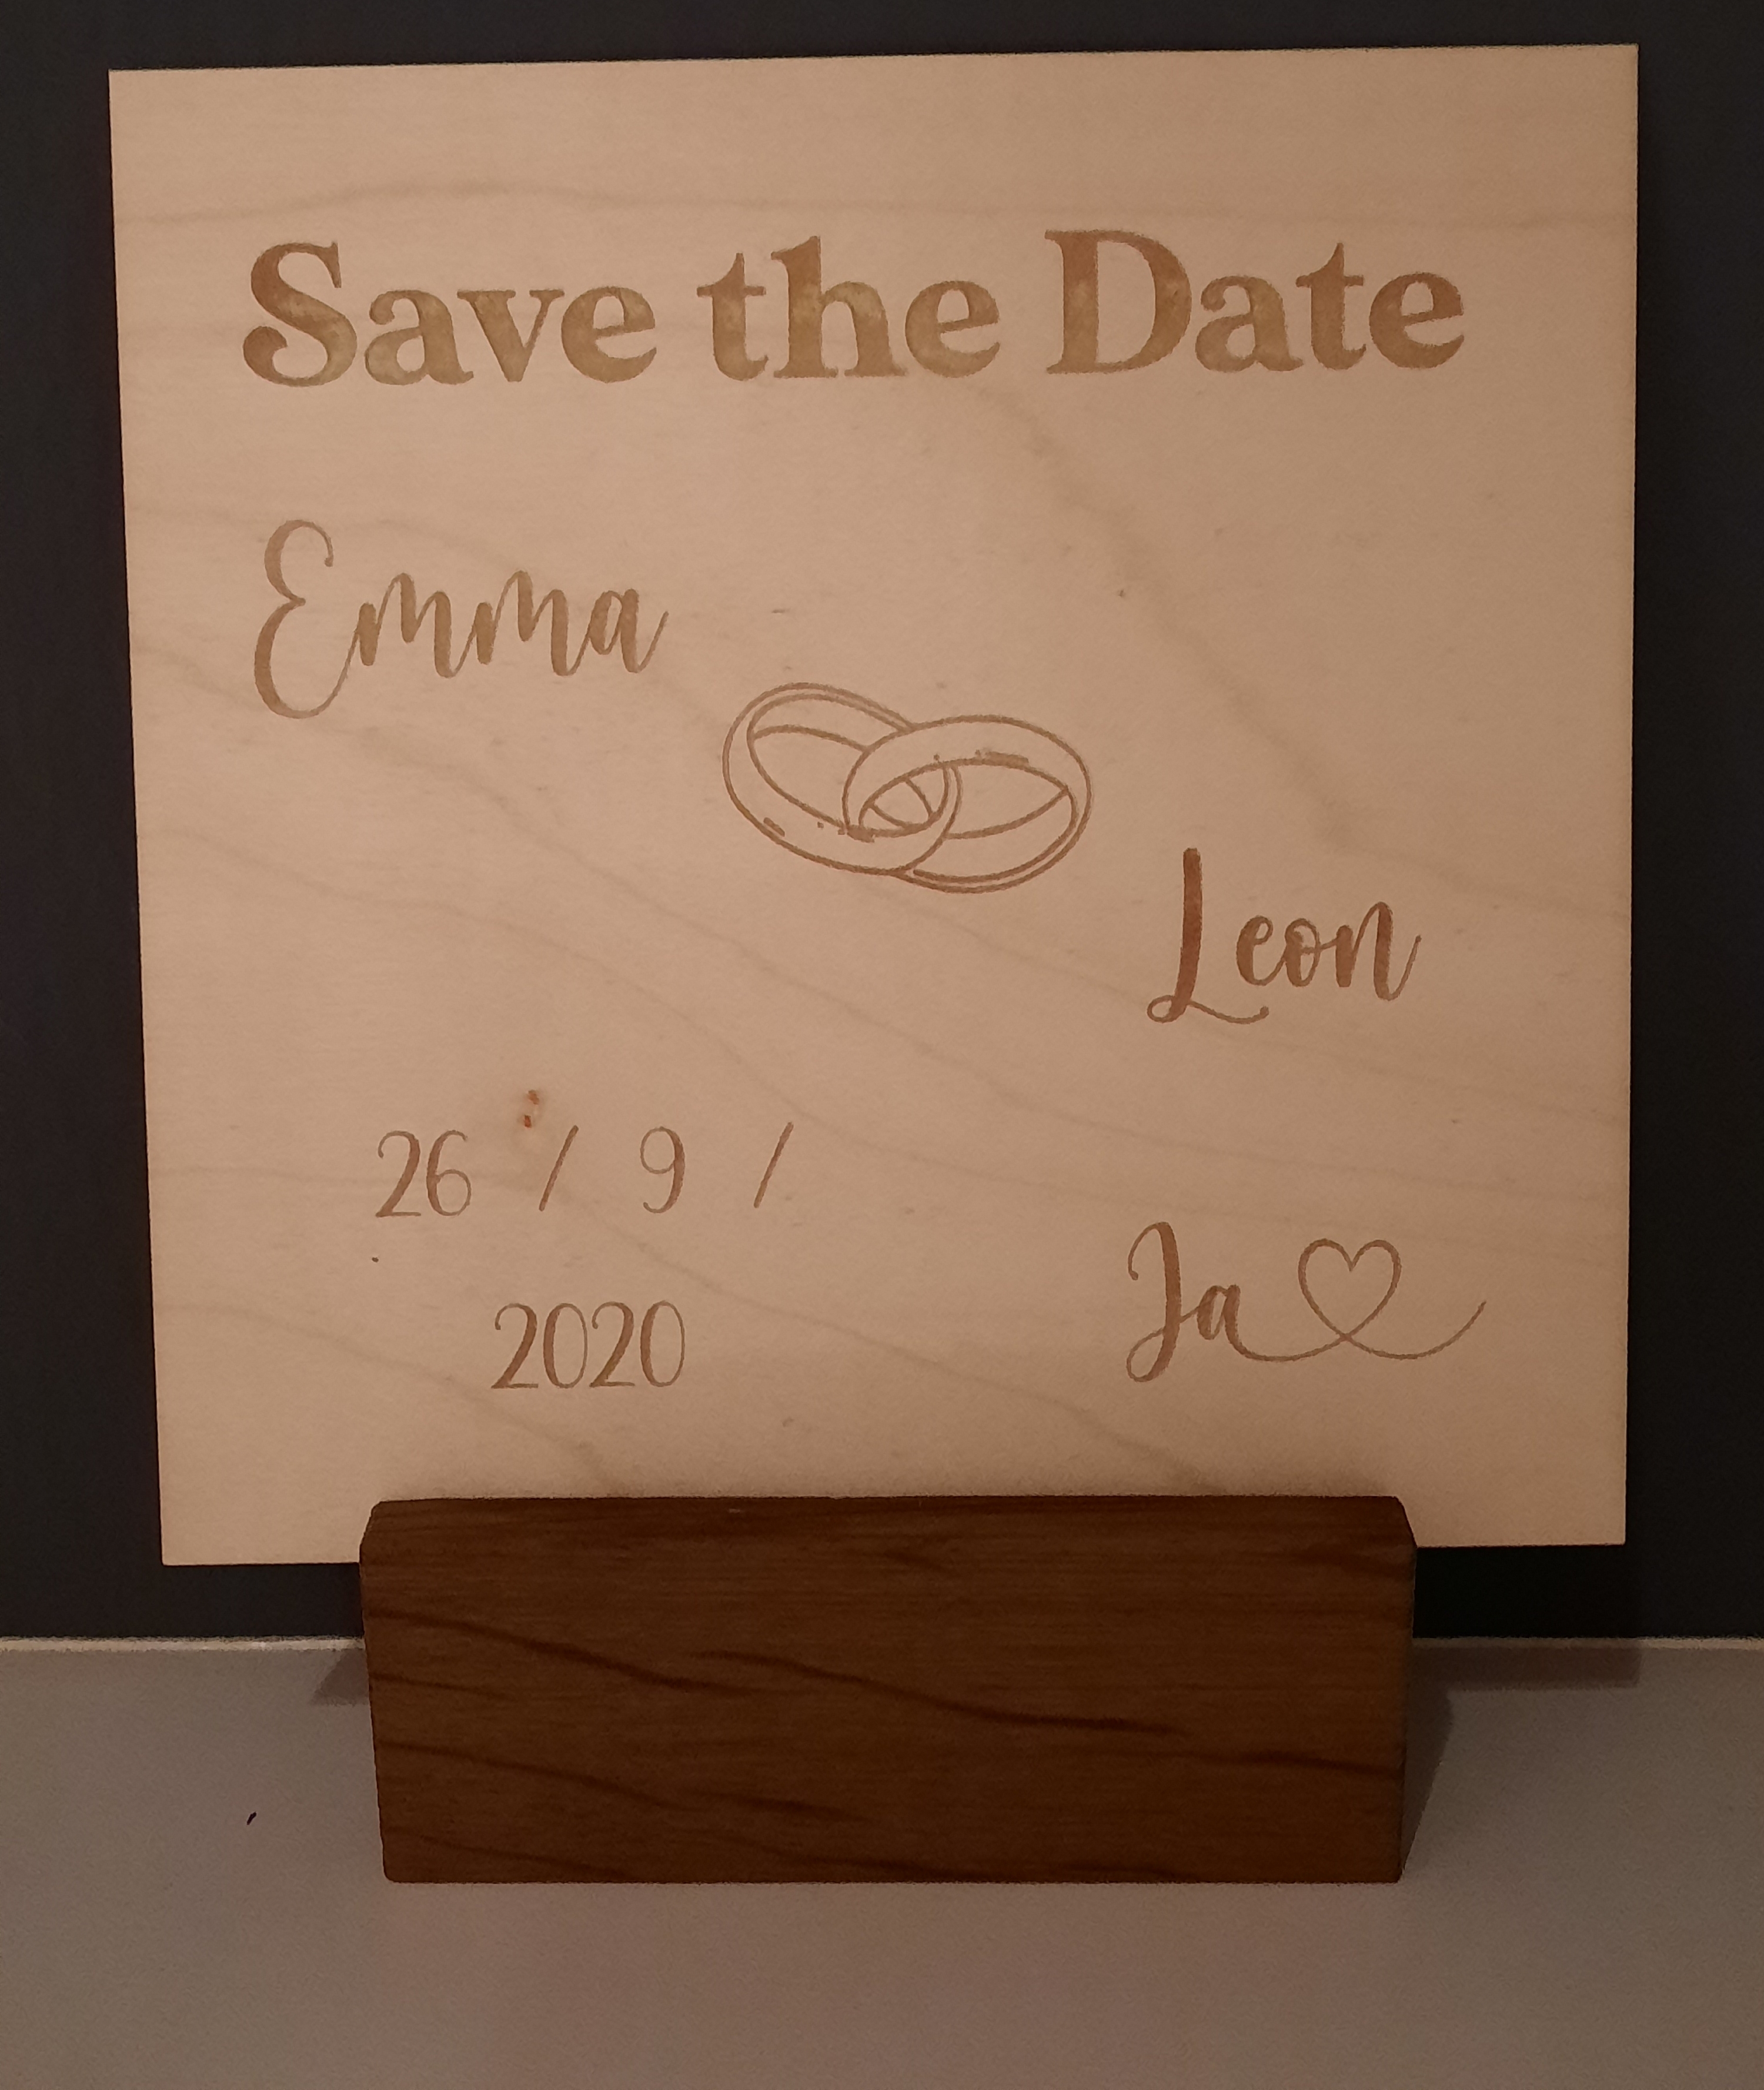 Save the Date
Emma
Leon
26 / 9 /
2020
Ja